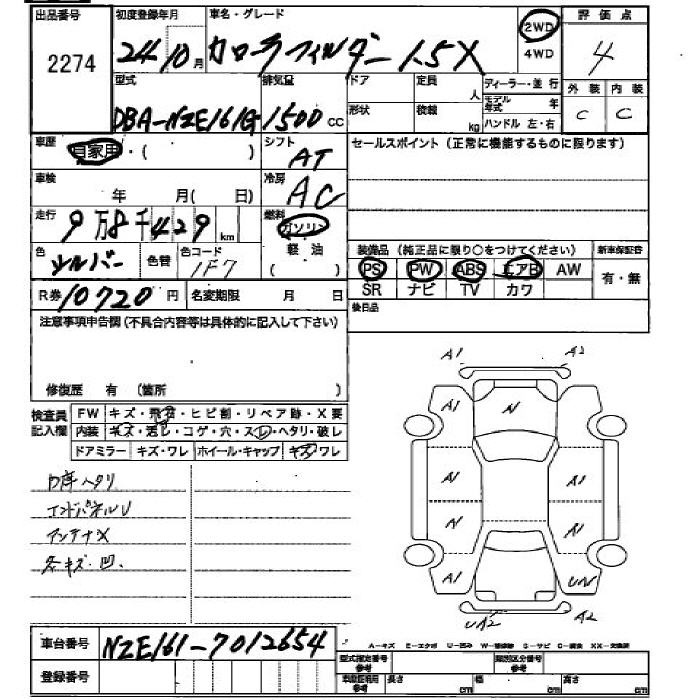 出品番号 初度登録年月 車名・グレード 2WD 評価点
2274 24 10月 カローラフィルダー 1.5X 4WD 4
型式 排気量 ドア 定員 人 ディーラー・並行 外装 内装
DBA-NZE161G 1500 CC 形状 積載 kg モデル年式 年 C C
ハンドル 左・右
車歴 自家用・( ) シフト AT セールスポイント(正常に機能するものに限ります)
車検 年 月( 日) 冷房 AC
走行 9万8千429km 燃料 ガソリン
軽油
( )
色 シルバー 色替 色コード 1F7
装備品(純正品に限り○をつけてください) 新車保証書
PS PW ABS エアB AW 有・無
SR ナビ TV カワ
R券 10720円 名変期限 月 日 後日品
注意事項申告欄(不具合内容等は具体的に記入して下さい)
修復歴 有 (箇所 )
検査員記入欄 FW キズ・飛石・ヒビ割・リペア跡・X要
内装 キズ・汚レ・コゲ・穴・スレ・ヘタリ・破レ
ドアミラー キズ・ワレ ホイール・キャップ キズ・ワレ
D席ヘタリ
インドパネルU
アンテナX
各キズ・凹.
A1 A2
A1 A1
A1 A1
A1
U12 A2
車台番号 NZE161-7012654
登録番号
A-キズ E-エクボ U-凹み S-サビ C-腐食 XX-交換済
型式指定番号 参考 類別区分番号 参考
車庫証明用 参考 長さ cm 幅 cm 高さ cm